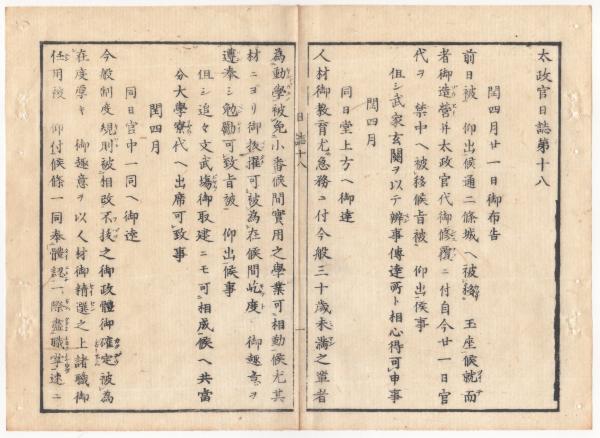 太政官日誌第十八
閏四月廿一日御布告
前日被 仰出候通二條城ヘ被移 玉座候就而
者御造營幷太政官代御修覆ニ付自今廿一日官
代ヲ 禁中ヘ被移候旨被 仰出候事
但シ武家玄関ヲ以テ辨事傳達所ト相心得可申事
閏四月
同日堂上方ヘ御達
人材御教育尤急務ニ付今般三十歳未滿之輩者
日誌十八
一
為勤學被免小番候間實用之學業可相勤候尤其
材ニヨリ御抜擢可被為在候間屹度 御趣意ヲ
遵奉シ勉勵可致旨被 仰出候事
但シ追々文武塲御取建ニモ可相成候ヘ共當
分大學寮代ヘ出席可致事
閏四月
同日宮中一同ヘ御達
今般制度規則被相改不抜之御政體御確定被為
在度厚キ 御趣意ヲ以人材御精選之上諸職御
任用被 仰付候條一同奉體認一際盡職掌速ニ